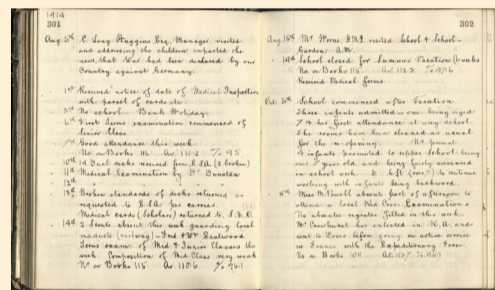 1914
301
Aug. 5th C. Long Huggins Esq., Manager, visited
and addressing the children imparted the
news, that War had been declared by our
Country against Germany.
1st Received notice of date of Medical Inspection
with parcel of cards etc.
3rd No school. Bank Holiday.
6th First Term examination commenced of
Senior Class.
7th Good attendance this week.
No. on Books 116 Av. 110.2 % 95
10th 14 Dual desks received from E.S.A. (2 broken)
11th Medical Examination by Dr
12th
13th Broken standards of desks returned as
requested to E.S.A. per carrier.
Medical cards (Scholars) returned to
14th 2 Scouts absent this week guarding local
viaducts (railway) Fred & Wm
Term exam. of Mid & Junior Classes this
week. Composition of Mid Class very weak
No. on Books 115 Av. 110.6 % 96.1
302
Aug. 18th Mr Horne H.M.I. visited School & School-
Gardens A.M.
School closed for Summer Vacation (6 weeks
No. on Books 115. Av.
Received Medical forms.
Oct. 5th School commenced after Vacation.
Three infants admitted – one being aged
7 & her first attendance at any school.
The rooms have been cleaned as usual
for the re-opening.
4 infants promoted to upper school: being
over 7 years old and being fairly advanced
in school work.
working with infants being backward.
8th Miss absent part of afternoon to
attend a local Red Cross Examination
No absentee register filled in this week.
Mr has enlisted in R.A. and
sent to Dover before going on active service
in France with the Expeditionary Force.
No. on Books 109 Av.